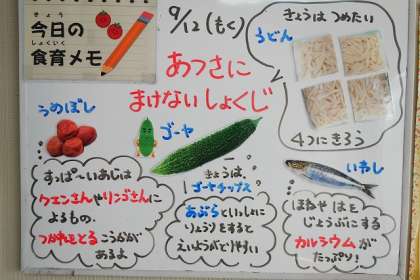 きょう
今日の
しょくいく
食育メモ
9/12(もく)
あつさに
まけないしょくじ
きょうは つめたい
うどん
4つにきろう
うめぼし
ゴーヤ
きょうは、
ゴーヤチップス
いわし
すっぱ〜いあじは
クエンさんやリンゴさんに
よるもの。
つかれをとるこうかが
あるよ
あぶらといっしょに
りょうりをすると
えいようがとりやすい
ほねやはを
じょうぶにする
カルシウムが
たっぷり!